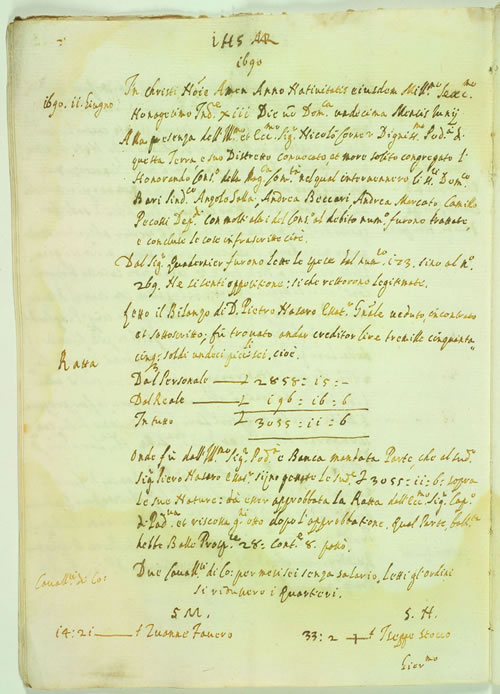 1690
1690. 11. Giugno
In Christi No͞ie Amen Anno Nativitatis eiusdem Mill.mo Sexc.mo
Nonagesimo Ind.e XIII Die Dom.ca undecima Mensis Iunij
Alla presenza dell' Ill.mo et Ecc.mo Sig. Nicolò Corner Digniss.mo Pod.à di
questa Terra e suo Distretto convocato et more solito congregato l'
Honorando Cons.o della Mag.ca Com.tà nel qual intervennero
Bari Sind.co Angolo Andrea Beccari, Andrea Marcato, Camillo
Pecotti con molti altri del Cons.o al debito num.o furono trattate,
e concluse le cose infrascritte cioè.
Dal Sig. Quadernier furono lette le spese dal num.o 123. sino al n.o
269. Nè si sentì oppositione: si che restorono legitimate.
Letto il Bilanzo di D. Pietro Hasaro veduto, incontrato
et sottoscritto; fù trovato andar creditor lire tremille cinquanta
cinq; soldi undeci piccoli sei. cioè.
Ratta
Dal Personale — L 2858: 15: -
Dal Reale — L 196: 16: 6
In tutto L 3055: 11: 6
Onde fù dall' Ill.mo Sig. Pod.à e Banca mandata Parte, che al sud.o
Sig. Piero Hasaro siino le sud.e L 3055: 11: 6: sopra
le sue dà esser approbbata la Ratta dall' Ecc.mo Sig. Cap.o
di Pad.va et riscossa g.ni otto dopo l'approbbatione. Qual Parte ball.ta
hebbe Balle Prosp.e 28: Cont.e 8.
Cavall.ri de Co:
Due Cavall.ri di Co: per mesi sei senza salario. Letti gli ordini
si ridussero i Quartieri.
S. M.
S. H.
14: 21 — Zuanne Favero
33: 2 Iseppe Stocco